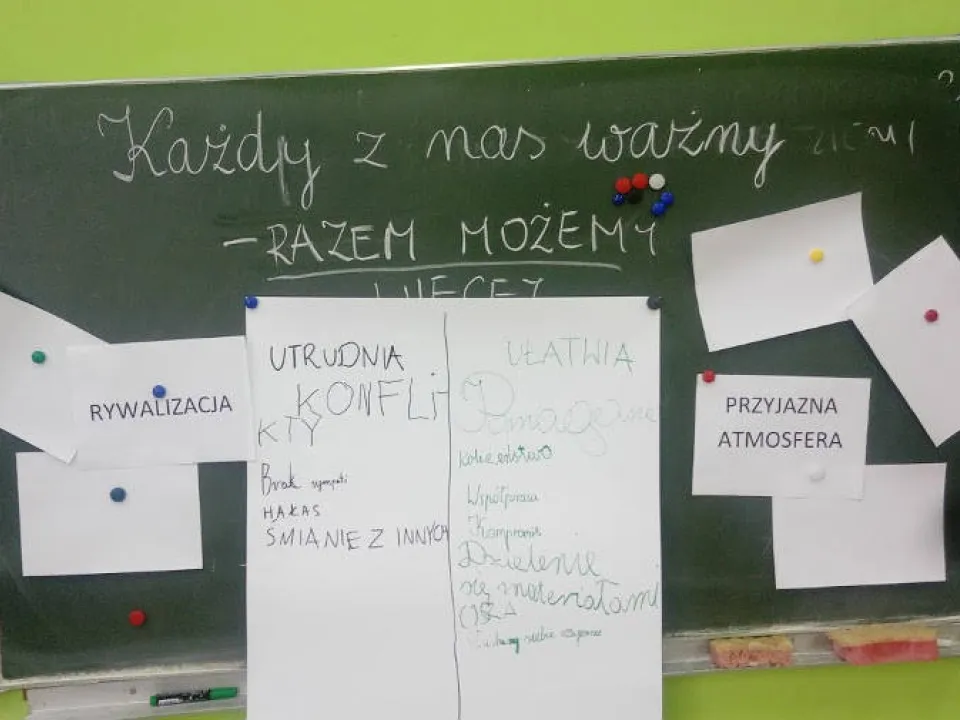 Każdy z nas ważny
- RAZEM MOŻEMY
WIĘCEJ
RYWALIZACJA
UTRUDNIA
KONFLI
KTY
Brak sympati
HAŁAS
ŚMIANIE Z INNYCH
UŁATWIA
Pomaganie
Koleżeństwo
Współpraca
Kompromis
Dzielenie
się materiałami
CISZA
PRZYJAZNA
ATMOSFERA